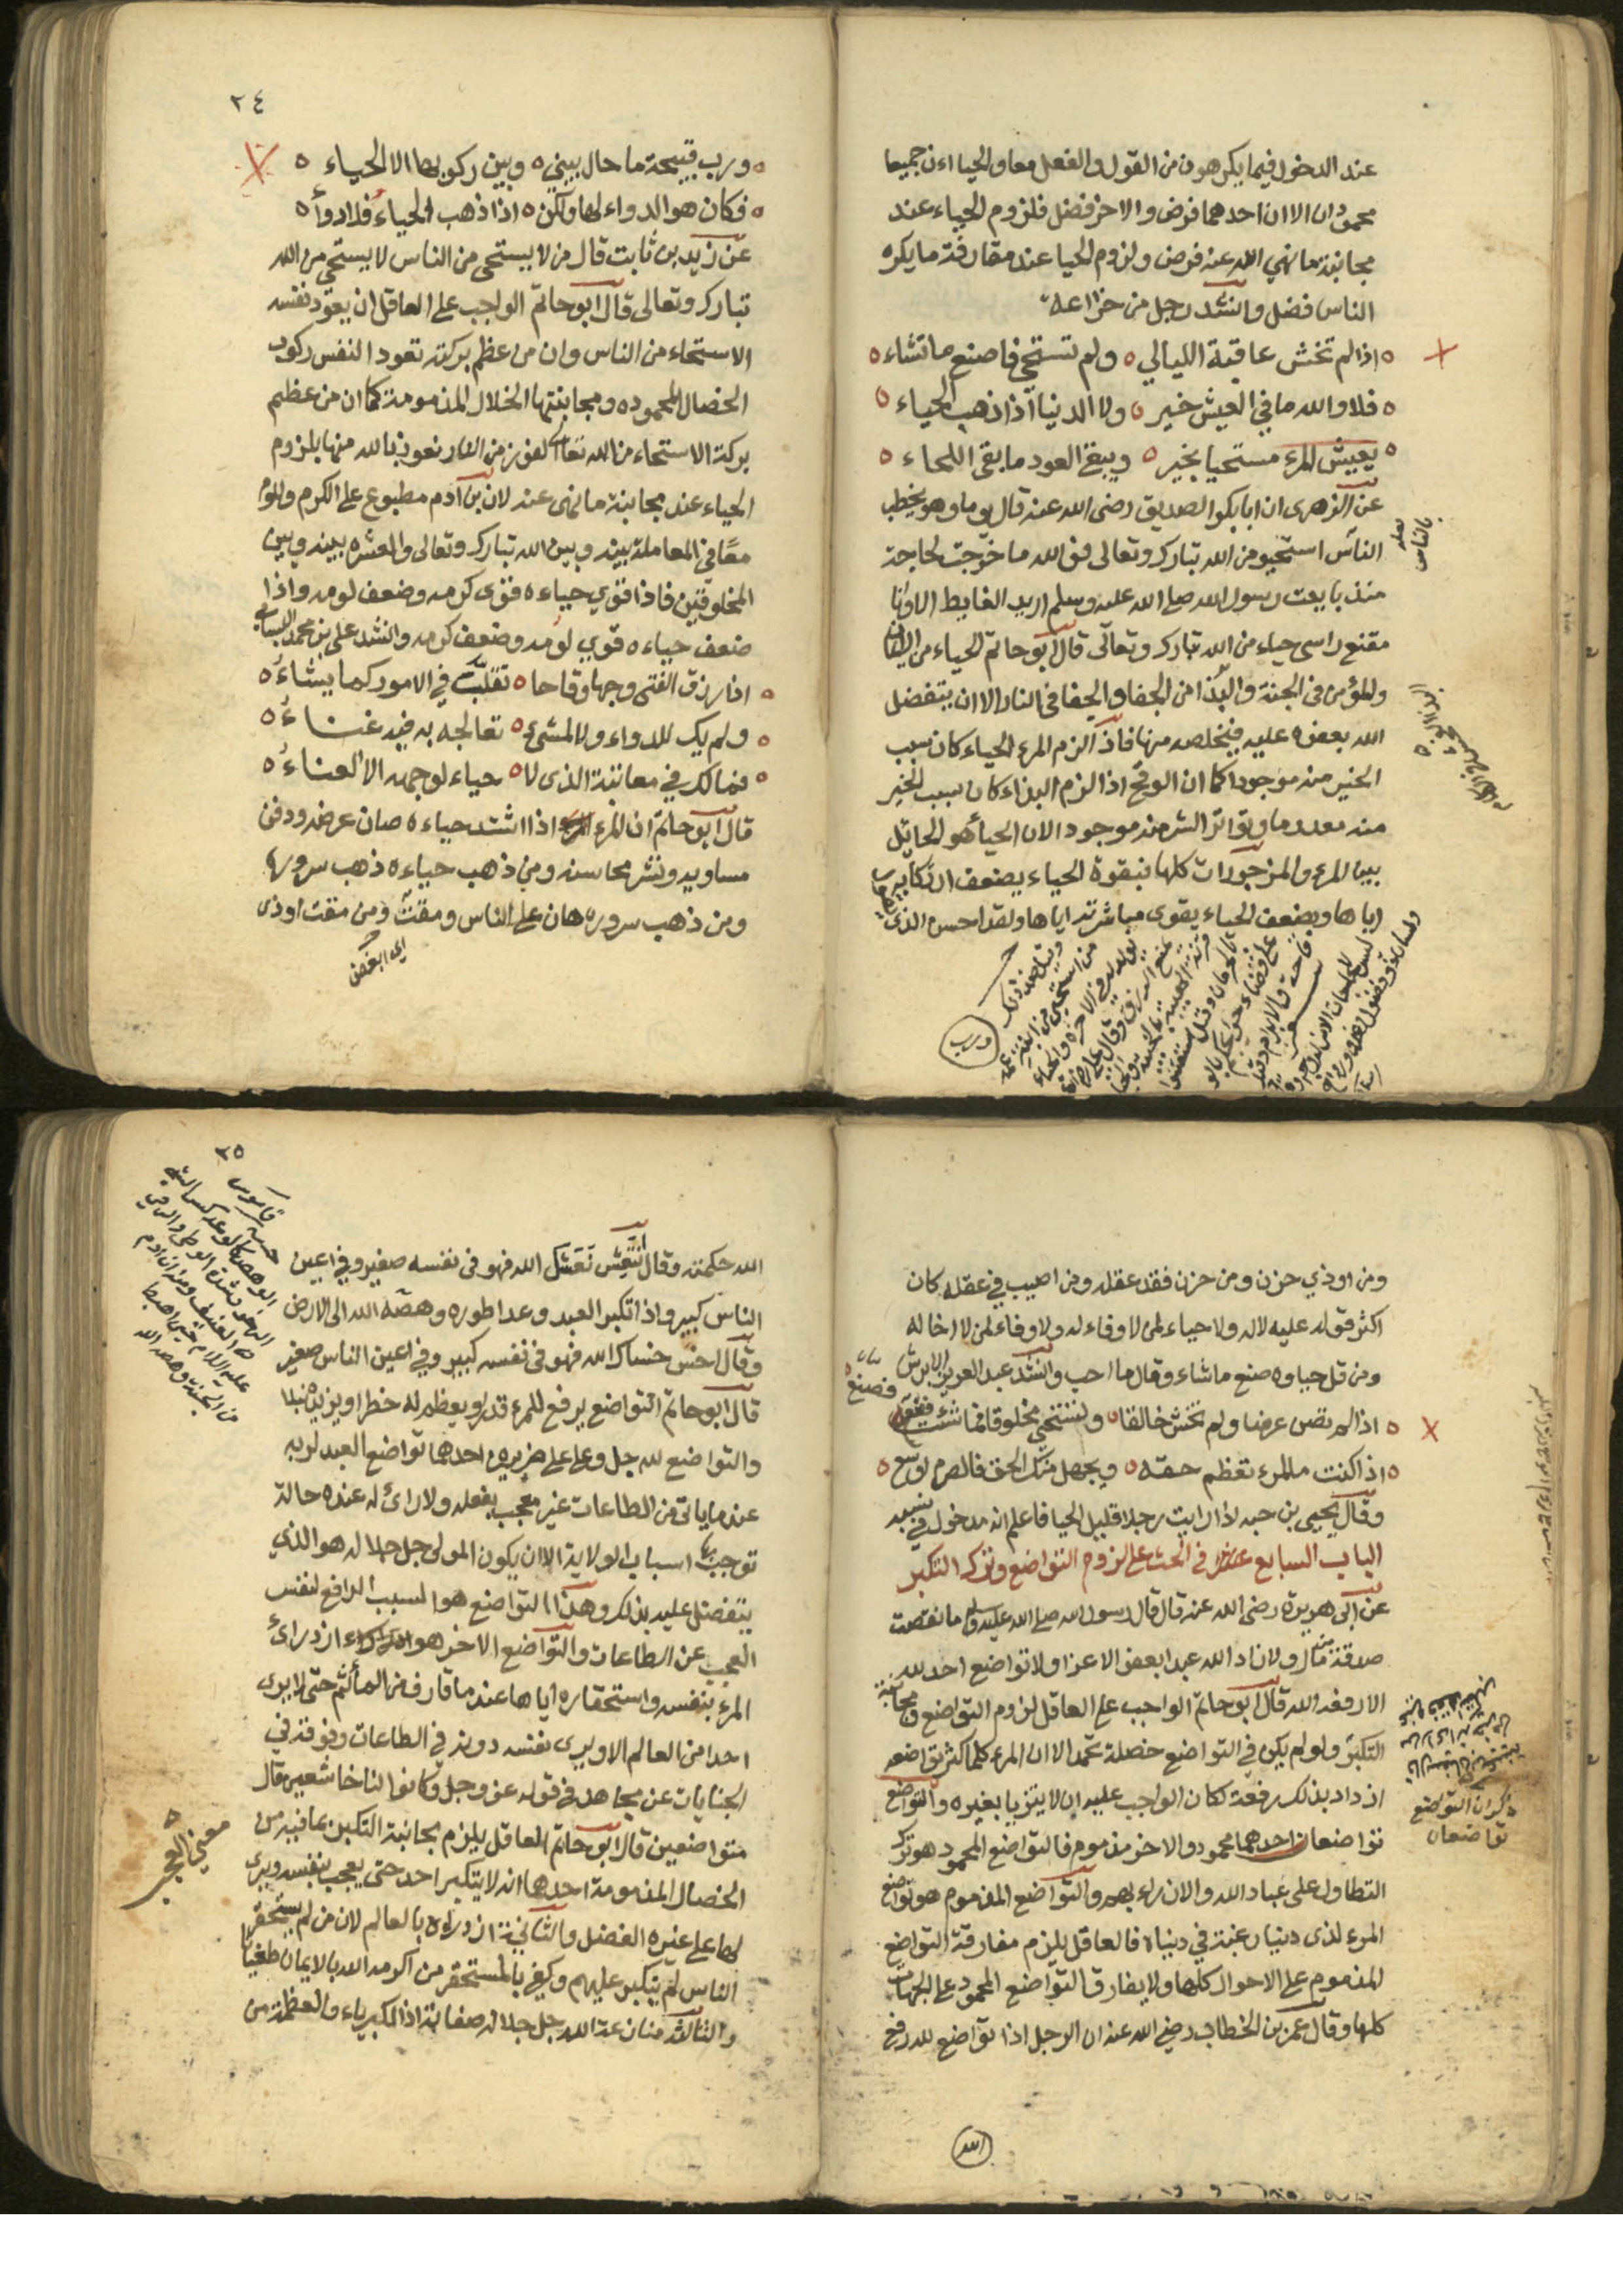 عند الدخول فيما يكرهون من القول والفعل معا والحيااءن جميعا
محمودان الا ان احدهما فرض والاخر فضل فلزوم الحياء عند
مجانبة ما نهي الله عنه فرض ولزوم الحيا عند مقارفة ما يكره
الناس فضل وانشد رجل من خزاعه
اذا لم تخش عاقبة الليالي ولم تستحي فاصنع ما تشاء
فلا والله ما في العيش خير ولا الدنيا اذا ذهب الحياء
يعيش المرء مستحيا بخير ويبقى العود ما بقى اللحاء
عن الزهرى ان ابا بكر الصديق رضى الله عنه قال يوما وهو يخطب
الناس استحيو من الله تبارك وتعالى فو الله ما خرجت لحاجة
منذ بايعت رسول الله صلى الله عليه وسلم اريد الغايط الا وانا
مقنع راسى حياء من الله تبارك وتعالى قال ابو حاتم الحياء من الايمان
والمؤمن في الجنة والبذا من الجفا والجفا في النار الا ان يتفضل
الله بعفوه عليه فيخلصه منها فاذا لزم المرء الحياء كان سبب
الخير منه موجودا كما ان الوقح اذا لزم البذاء كان سبب الخير
منه معدوما وتواتر الشر منه موجود الان الحيا هو الحايل
بين المرء والمزجورات كلها فبقوة الحياء يضعف ارتكابه
اياها وبضعف الحياء يقوى مباشرته اياها ولقد احسن الذى
ورب
٢٤
ورب قبيحة ما حال بيني وبين ركوبها الا الحياء
فكان هو الدواء لها ولكن اذا ذهب الحياء فلا دواء
عن زيد بن ثابت قال من لا يستحى من الناس لا يستحي من الله
تبارك وتعالى قال ابو حاتم الواجب على العاقل ان يعود نفسه
الاستحاء من الناس وان من عظم بركته تعود النفس ركوب
الخصال المحموده ومجانبتها الخلال المذمومة كما ان من عظيم
بركة الاستحاء من الله تعالى الفوز من النار نعوذ بالله منها بلزوم
الحياء عند مجانبة ما نهى عنه لان بن آدم مطبوع على الكرم واللوم
معا في المعاملة بينه وبين الله تبارك وتعالى والعشره بينه وبين
المخلوقين فاذا قوي حياءه قوى كرمه وضعف لومه واذا
ضعف حياءه قوي لومه وضعف كرمه وانشد على بن محمد البسامي
اذا رزق الفتى وجها وقاحا تقلب في الامور كما يشاء
ولم يك للدواء ولا لشئ تعالجه به فيه غناء
فما لك في معاتبة الذى لا حياء لوجهه الا العناء
قال ابو حاتم ان المرء اذا اشتد حياءه صان عرضه ودفن
مساويه ونشر محاسنه ومن ذهب حياءه ذهب سروره
ومن ذهب سروره هان على الناس ومقت ومن مقت اوذى
اى ابغض
ومن اوذي حزن ومن حزن فقد عقله ومن اصيب في عقله كان
اكثر قوله عليه لا له ولا حياء لمن لا وفاء له ولا وفاء لمن لا اخا له
ومن قل حياوه صنع ما شاء وقال ما احب وانشد عبد العزيز الابرش
اذا لم تصن عرضا ولم تخش خالقا وتستحي مخلوقا فما شئت فاصنع
اذا كنت للمرء تعظم حقه ويجهل منك الحق فالصرم اوسع
وقال يحيى بن جبه اذا رايت رجلا قليل الحيا فاعلم انه مدخول في نسبه
الباب السابع عشر في الحث على لزوم التواضع وترك التكبر
عن ابى هريرة رضى الله عنه قال قال رسول الله صلى الله عليه وسلم ما نقصت
صدقة من مال ولا زاد الله عبدا بعفو الا عزا ولا تواضع احد لله
الا رفعه الله قال ابو حاتم الواجب على العاقل لزوم التواضع ومجانبة
التكبر ولو لم يكن في التواضع خصلة تحمد الا ان المرء كلما كثر تواضعه
ازداد بذلك رفعة لكان الواجب عليه ان لا يتزيا بغيره والتواضع
تواضعان احدهما محمود والاخر مذموم فالتواضع المحمود هو ترك
التطاول على عباد الله والازراء بهم والتواضع المذموم هو تواضع
المرء لذى دنيا رغبة في دنياه فالعاقل يلزم مفارقة التواضع
المذموم على الاحوال كلها ولا يفارق التواضع المحمود على الجهات
كلها وقال عمر بن الخطاب رضي الله عنه ان الرجل اذا تواضع لله رفع
ذكر ان التواضع
تواضعان
الله
٢٥
الله حكمته وقال انتعش نعشك الله فهو في نفسه صغير وفي اعين
الناس كبير واذا تكبر العبد وعدا طوره وهصه الله الى الارض
وقال اخس خساك الله فهو في نفسه كبير وفي اعين الناس صغير
قال ابو حاتم التواضع يرفع للمرء قدرا ويعظم له خطرا ويزيده نبلا
والتواضع لله جل وعلى على ضربين احدهما تواضع العبد لربه
عند ما ياتى من الطاعات غير معجب بفعله ولا رائ له عنده حالة
توجب بها اسباب الولاية الا ان يكون المولى جل جلاله هو الذي
يتفضل عليه بذلك وهذا التواضع هو السبب الدافع لنفس
العجب عن الطاعات والتواضع الاخر هو ازدراء
المرء بنفسه واستحقاره اياها عند ما قارف من المآثم حتى لا يرى
احدا من العالم الا ويرى نفسه دونه في الطاعات وفوقه في
الجنايات عن مجاهد في قوله عز وجل وكانوا لنا خاشعين قال
متواضعين قال ابو حاتم العاقل يلزم مجانبة التكبر لما فيه من
الخصال المذمومة احدها انه لا يتكبر احد حتى يعجب بنفسه ويرى
لها على غيره الفضل والثانية ازدراءه بالعالم لان من لم يستحقر
الناس لم يتكبر عليهم وكفى بالمستحقر من اكرمه الله بالايمان طغيانا
والثالث منازعة الله جل جلاله صفاته اذ الكبرياء والعظمة من